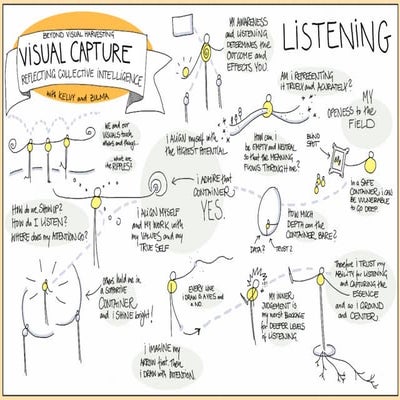 BEYOND VISUAL HARVESTING
VISUAL CAPTURE
REFLECTING COLLECTIVE INTELLIGENCE
with KELVY and ZULMA
MY AWARENESS
and LISTENING
DETERMINES the
OUTCOME and
EFFECTS YOU
LISTENING
AM I REPRESENTING
IT TRUELY and ACURATELY?
MY
OPENESS to the
FIELD
WE and our
VISUALS touch
others and things...
...what are
the RIPPLES?
I ALIGN myself with
the HIGHEST POTENTIAL
HOW can I
BE EMPTY and NEUTRAL
so that the MEANING
FLOWS THROUGH ME?
BLIND
SPOT
IN a SAFE
CONTAINER, I CAN
BE VULNERABLE
to GO DEEP
I ADMIRE that
CONTAINER
YES.
HOW do WE SHOW UP?
HOW do I LISTEN?
WHERE does my ATTENTION GO?
I ALIGN MYSELF
and MY WORK with
my VALUES and my
TRUE SELF
HOW MUCH
DEPTH can the
CONTAINER, BARE?
DATA?
TRUST?
others hold me in
a SUPPORTIVE
CONTAINER
and I SHINE bright!
EVERY LINE
I DRAW IS A YES and
a NO.
MY INNER
JUDGEMENT IS
my worst BAGGAGE
for DEEPER LEVELS
of LISTENING
Therefore I TRUST my
ABILITY for LISTENING
and CAPTURING the
ESSENCE
and so I GROUND
and CENTER.
I IMAGINE my
ARROW that there
I DRAW with INTENTION.